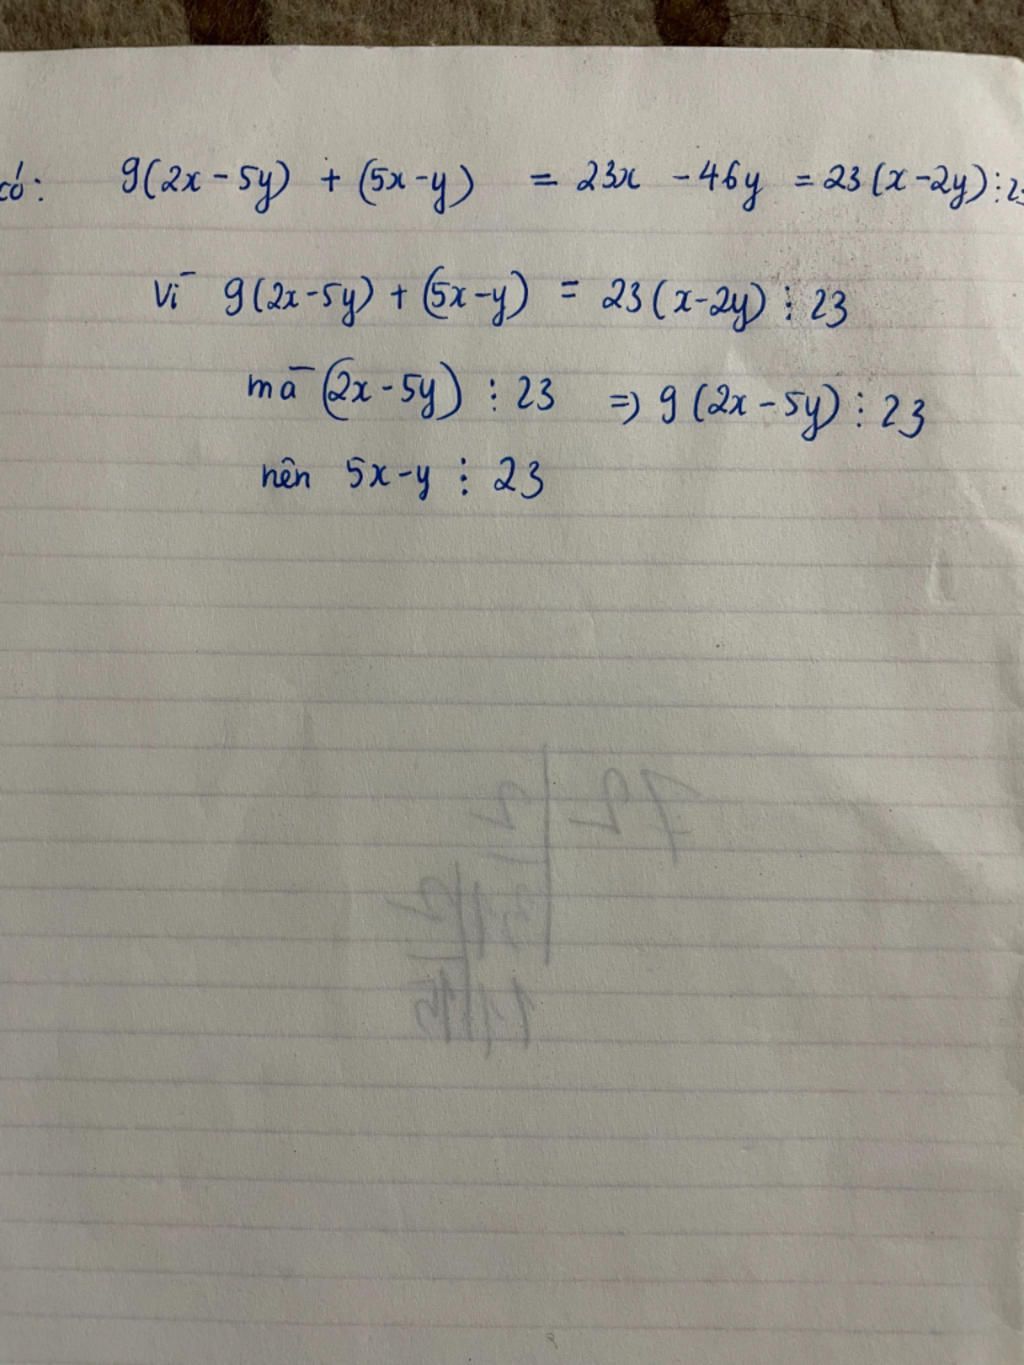 có: 9(2x - 5y) + (5x - y) = 23x - 46y = 23(x - 2y) ⋮ 23
Vì 9(2x - 5y) + (5x - y) = 23(x - 2y) ⋮ 23
mà (2x - 5y) ⋮ 23 => 9(2x - 5y) ⋮ 23
nên 5x - y ⋮ 23